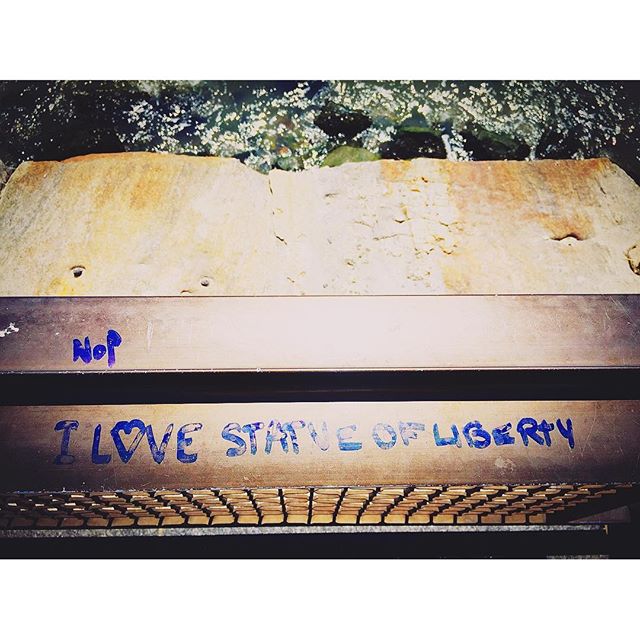 NOP
I LOVE STATUE OF LIBERTY